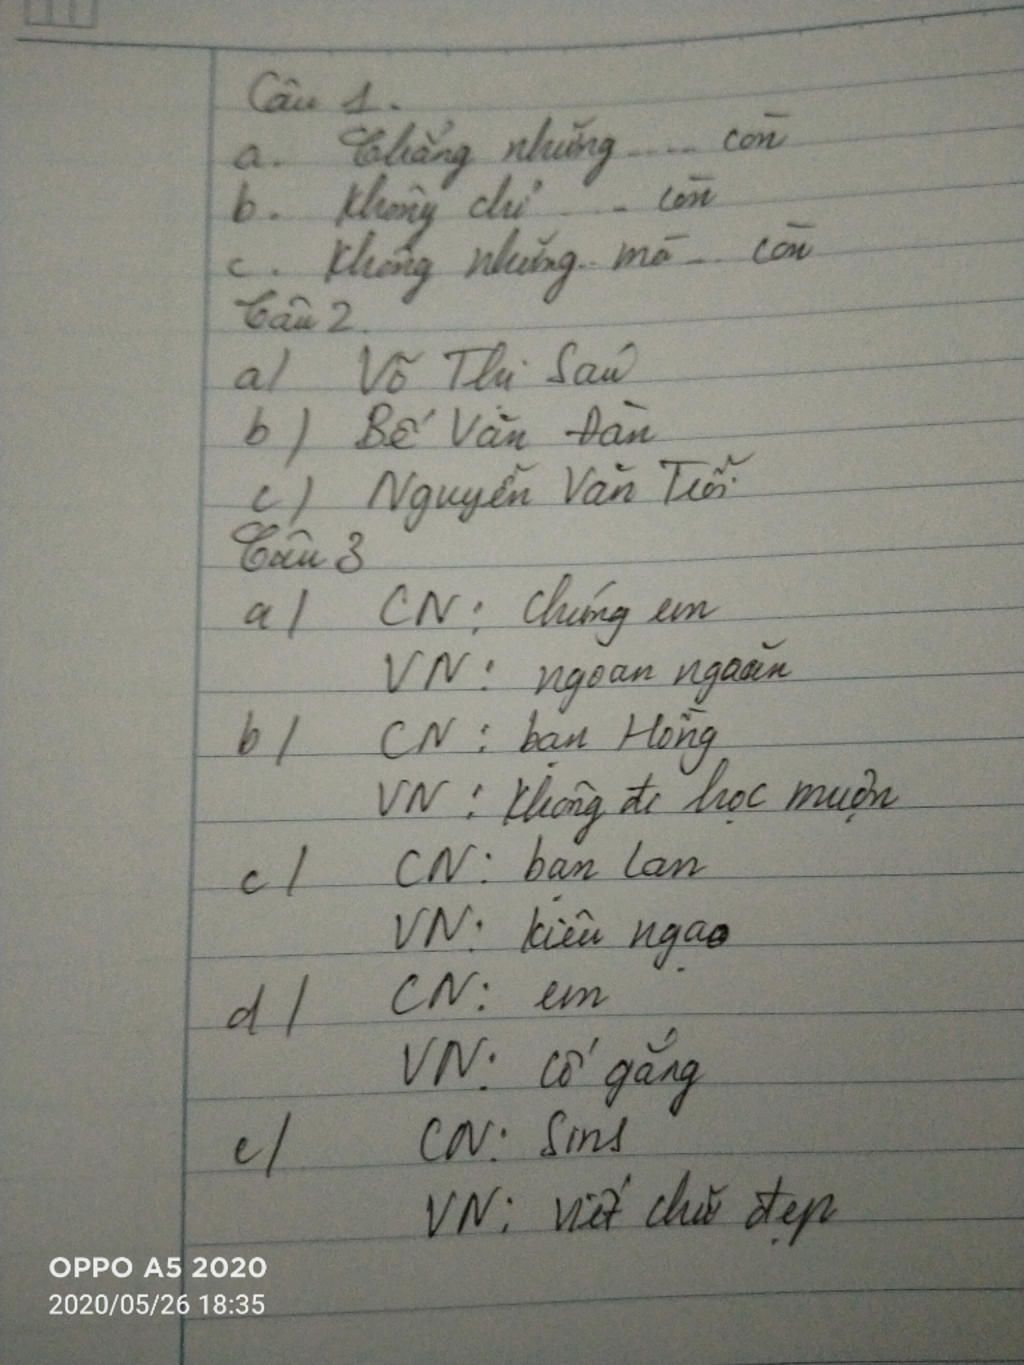 Câu 1.
a. Chẳng những .... còn
b. Không chỉ ... còn
c. Không những.. mà .. còn
Câu 2.
a) Võ Thị Sáu
b) Bế Văn Đàn
c) Nguyễn Văn Trỗi
Câu 3
a) CN: Chúng em
VN: ngoan ngoãn
b) CN: bạn Hồng
VN: Không đi học muộn
c) CN: bạn Lan
VN: kiêu ngạo
d) CN: em
VN: cố gắng
e) CN: Sins
VN: viết chữ đẹp
OPPO A5 2020
2020/05/26 18:35